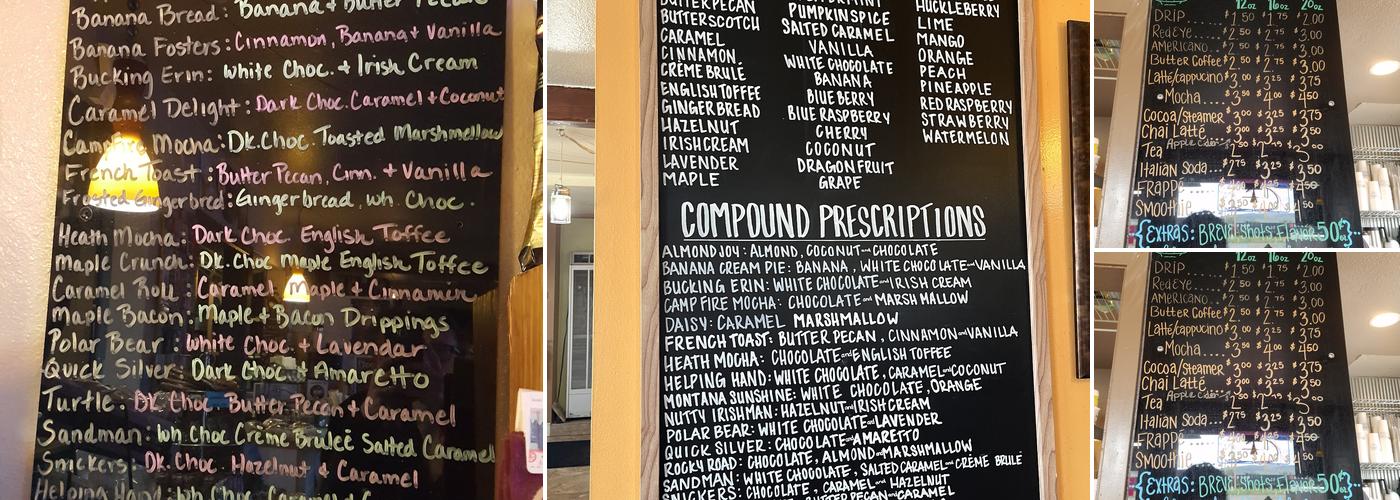 Banana Bread: Banana + Butter Pecan
Banana Fosters: Cinnamon, Banana + Vanilla
Bucking Erin: White Choc. + Irish Cream
Caramel Delight: Dark Choc. Caramel + Coconut
Campfire Mocha: Dk. Choc. Toasted Marshmellow
French Toast: Butter Pecan, Cinn. + Vanilla
Frosted Gingerbred: Gingerbread, wh. Choc.
Heath Mocha: Dark Choc. English Toffee
Maple Crunch: Dk. Choc Maple English Toffee
Caramel Roll: Caramel Maple + Cinnamin
Maple Bacon: Maple + Bacon Drippings
Polar Bear: White Choc. + Lavendar
Quick Silver: Dark Choc + Amaretto
Turtle: Dk. Choc. Butter Pecan + Caramel
Sandman: Wh. Choc Creme Brulee Salted Caramel
Snickers: Dk. Choc. Hazelnut + Caramel
Helping Hand: Wh Choc
BUTTERPECAN
BUTTERSCOTCH
CARAMEL
CINNAMON
CRÈME BRULÉ
ENGLISH TOFFEE
GINGERBREAD
HAZELNUT
IRISHCREAM
LAVENDER
MAPLE
PUMPKIN SPICE
SALTED CARAMEL
VANILLA
WHITE CHOCOLATE
BANANA
BLUE BERRY
BLUE RASPBERRY
CHERRY
COCONUT
DRAGON FRUIT
GRAPE
HUCKLEBERRY
LIME
MANGO
ORANGE
PEACH
PINEAPPLE
RED RASPBERRY
STRAWBERRY
WATERMELON
COMPOUND PRESCRIPTIONS
ALMOND JOY: ALMOND, COCONUT and CHOCOLATE
BANANA CREAM PIE: BANANA, WHITE CHOCOLATE and VANILLA
BUCKING ERIN: WHITE CHOCOLATE and IRISH CREAM
CAMP FIRE MOCHA: CHOCOLATE and MARSH MALLOW
DAISY: CARAMEL MARSHMALLOW
FRENCH TOAST: BUTTER PECAN, CINNAMON and VANILLA
HEATH MOCHA: CHOCOLATE and ENGLISH TOFFEE
HELPING HAND: WHITE CHOCOLATE, CARAMEL and COCONUT
MONTANA SUNSHINE: WHITE CHOCOLATE, ORANGE
NUTTY IRISHMAN: HAZELNUT and IRISH CREAM
POLAR BEAR: WHITE CHOCOLATE and LAVENDER
QUICK SILVER: CHOCOLATE and AMARETTO
ROCKY ROAD: CHOCOLATE, ALMOND and MARSHMALLOW
SANDMAN: WHITE CHOCOLATE, SALTED CARAMEL and CRÈME BRULÉ
SNICKERS: CHOCOLATE, CARAMEL and HAZELNUT
BUTTER PECAN and CARAMEL
12oz 16oz 20oz
DRIP..... $1.50 $1.75 $2.00
Red EYE..... $2.50 $2.75 $3.00
AMERICANO.. $2.50 $2.75 $3.00
Butter Coffee $2.50 $2.75 $3.00
Latté/cappucino $3.00 $3.25 $3.75
Mocha.... $3.50 $4.00 $4.50
Cocoa/Steamer $3.00 $3.25 $3.75
Chai Latté $3.00 $3.25 $3.50
Tea Apple Cider
Italian Soda.. $2.75 $3.25 $3.50
FRAPPÉ
Smoothie
{Extras: BREVE Shots Flavor 50¢}
12oz 16oz 20oz
DRIP
Red EYE..... $2.50 $2.75 $3.00
AMERICANO.. $2.50 $2.75 $3.00
Butter Coffee $2.50 $2.75 $3.00
Latté/cappucino $3.00 $3.25 $3.75
Mocha.... $3.50 $4.00 $4.50
Cocoa/Steamer $3.00 $3.25 $3.75
Chai Latté $3.00 $3.25 $3.50
Tea Apple Cider
Italian Soda.. $2.75 $3.25 $3.50
FRAPPÉ
Smoothie
{Extras: BREVE Shots Flavor 50¢}